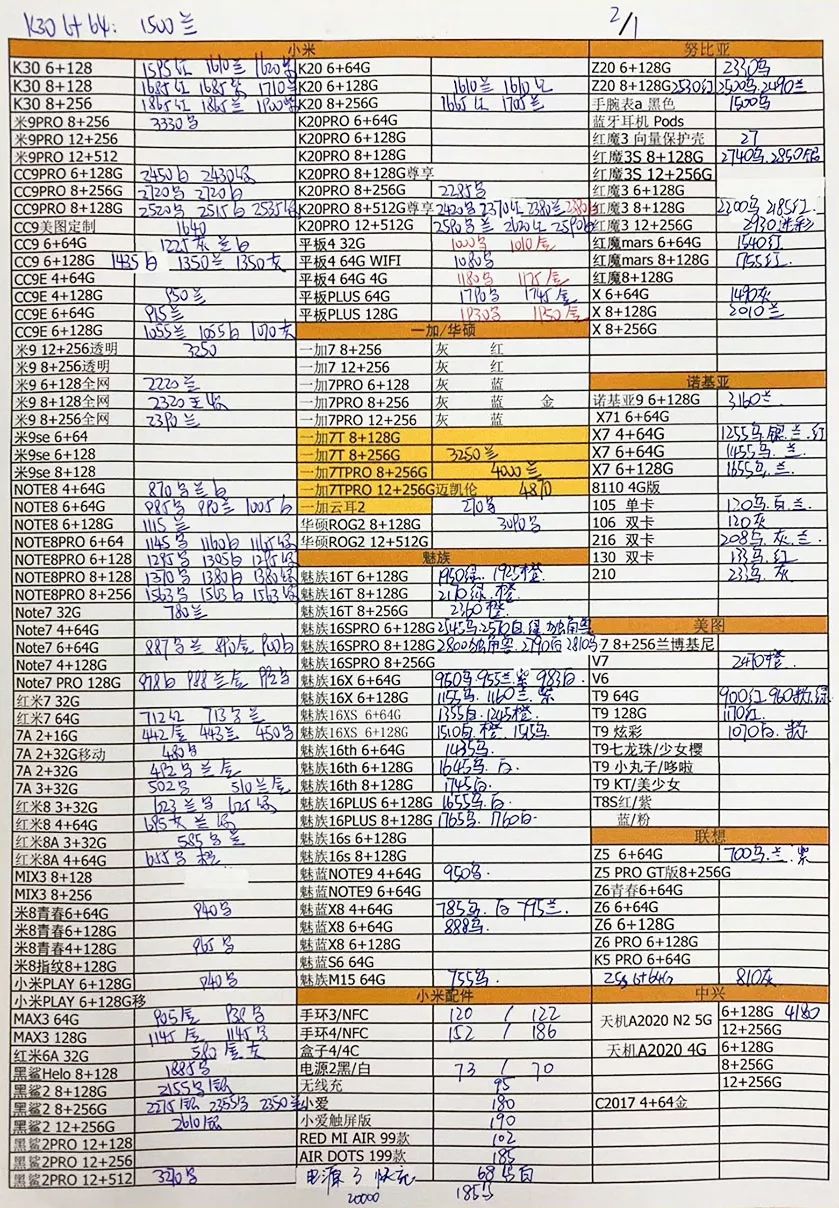 K30 6+64: 1500兰
2/1
小米
K30 6+128 1595红 1610兰 1620紫
K30 8+128 1685红 1685紫 1710兰
K30 8+256 1865红 1865兰 1900紫
米9PRO 8+256 3330乌
米9PRO 12+256
米9PRO 12+512
CC9PRO 6+128G 2450白 2430绿
CC9PRO 8+256G 2720乌 2720白
CC9PRO 8+128G 2520乌 2515白 2535绿
CC9美图定制 1640
CC9 6+64G 1225灰 兰 白
CC9 6+128G 1435白 1350兰 1350灰
CC9E 4+64G
CC9E 4+128G 950兰
CC9E 6+64G 915兰
CC9E 6+128G 1055兰 1055白 1070灰
米9 12+256透明 3250
米9 8+256透明
米9 6+128全网 2220兰
米9 8+128全网 2320
米9 8+256全网 2390兰
米9se 6+64
米9se 6+128
米9se 8+128
NOTE8 4+64G 870乌 兰 白
NOTE8 6+64G 985乌 990兰 1005白
NOTE8 6+128G 1115兰
NOTE8PRO 6+64 1145乌 1160白 1165绿
NOTE8PRO 6+128 1295乌 1305白 1295绿
NOTE8PRO 8+128 1370乌 1380白 1380绿
NOTE8PRO 8+256 1563乌 1563白 1563绿
Note7 32G 780兰
Note7 4+64G
Note7 6+64G 887乌 兰 890屋 900白
Note7 4+128G
Note7 PRO 128G 978白 988兰 屋 992乌
红米7 32G
红米7 64G 712红 713乌 兰
7A 2+16G 442屋 443兰 450乌
7A 2+32G移动 480乌
7A 2+32G 492乌 兰 屋
7A 3+32G 502乌 510兰 屋
红米8 3+32G 623兰 乌 625绿
红米8 4+64G 695灰 兰 绿
红米8A 3+32G 585乌 兰
红米8A 4+64G 655乌
MIX3 8+128
MIX3 8+256
米8青春6+64G 940乌
米8青春6+128G
米8青春4+128G 965乌
米8指纹8+128G
小米PLAY 6+128G 940乌
小米PLAY 6+128G移
MAX3 64G 905屋 938乌
MAX3 128G 1145屋 1145乌
红米6A 32G 580屋 灰
黑鲨Helo 8+128 1885乌
黑鲨2 8+128G 2155乌 银
黑鲨2 8+256G 2275银 2355乌 2350兰
黑鲨2 12+256G 2610银
黑鲨2PRO 12+128
黑鲨2PRO 12+256
黑鲨2PRO 12+512 3270乌
K20 6+64G
K20 6+128G 1610兰 1610红
K20 8+256G 1665红 1705兰
K20PRO 6+64G
K20PRO 6+128G
K20PRO 8+128G
K20PRO 8+128G尊享
K20PRO 8+256G 2285乌
K20PRO 8+512G尊享 2420乌 2370红 2380兰
K20PRO 12+512G 2580乌 兰 2620红 2590白
平板4 32G 1000乌 1010屋
平板4 64G WIFI 1080乌
平板4 64G 4G 1180乌 1175屋
平板PLUS 64G 1790乌 1745屋
平板PLUS 128G 1930乌 1950屋
一加/华硕
一加7 8+256 灰 红
一加7 12+256 灰 红
一加7PRO 6+128 灰 蓝
一加7PRO 8+256 灰 蓝 金
一加7PRO 12+256 灰 蓝
一加7T 8+128G
一加7T 8+256G 3250兰
一加7TPRO 8+256G 4000兰
一加7TPRO 12+256G迈凯伦 4870
一加云耳2 270乌
华硕ROG2 8+128G 3090乌
华硕ROG2 12+512G
魅族
魅族16T 6+128G 1950绿. 1925橙.
魅族16T 8+128G 2170绿. 橙.
魅族16T 8+256G 2360橙.
魅族16SPRO 6+128G 2545乌.2570白.绿.独角兽
魅族16SPRO 8+128G 2800独角兽.2790白 2810乌
魅族16SPRO 8+256G
魅族16X 6+64G 960乌.955兰.紫 983白.
魅族16X 6+128G 1155乌. 1160兰.紫
魅族16XS 6+64G 1355白.1245橙.
魅族16XS 6+128G 1510白.橙. 1545乌.
魅族16th 6+64G 1435乌.
魅族16th 6+128G 1645乌.白.
魅族16th 8+128G 1745白.
魅族16PLUS 6+128G 1655乌.白.
魅族16PLUS 8+128G 1765乌. 1760白.
魅族16s 6+128G
魅族16s 8+128G
魅蓝NOTE9 4+64G 950乌.
魅蓝NOTE9 6+64G
魅蓝X8 4+64G 785乌.白 795兰.
魅蓝X8 6+64G 888乌.
魅蓝X8 6+128G
魅蓝S6 64G
魅族M15 64G 755乌.
小米配件
手环3/NFC 120 / 122
手环4/NFC 152 / 186
盒子4/4C
电源2黑/白 73 / 70
无线充 95
小爱 180
小爱触屏版 190
RED MI AIR 99款 102
AIR DOTS 199款 185
电源3 快充 68乌白
20000 185乌
努比亚
Z20 6+128G 2330乌
Z20 8+128G 2530红 2500乌.2490兰
手腕表a 黑色 1500乌
蓝牙耳机 Pods
红魔3 向量保护壳 27
红魔3S 8+128G 2740乌.2850银
红魔3S 12+256G
红魔3 6+128G
红魔3 8+128G 2200乌 2185红.
红魔3 12+256G 2930迷彩
红魔mars 6+64G 1540红
红魔mars 8+128G 1755红.
红魔8+128G
X 6+64G 1490灰
X 8+128G 2010兰
X 8+256G
诺基亚
诺基亚9 6+128G 3160兰
X71 6+64G
X7 4+64G 1255乌.银.兰.红
X7 6+64G 1455乌.兰.
X7 6+128G 1655乌.兰.
8110 4G版
105 单卡 120乌.白.兰
106 双卡 120灰
216 双卡 208乌.灰.兰
130 双卡 133乌.红
210 233乌.灰
美图
T7 8+256兰博基尼
V7 2470橙.
V6
T9 64G 900红.960粉.绿
T9 128G 1170红.
T9 炫彩 1070白.粉.
T9七龙珠/少女樱
T9 小丸子/哆啦
T9 KT/美少女
T8S红/紫
蓝/粉
联想
Z5 6+64G 700乌.兰.紫
Z5 PRO GT版8+256G
Z6青春6+64G
Z6 6+64G
Z6 6+128G
Z6 PRO 6+128G
K5 PRO 6+64G
Z5s 6+64G 810灰
中兴
天机A2020 N2 5G 6+128G 4180
12+256G
天机A2020 4G 6+128G
8+256G
12+256G
C2017 4+64金